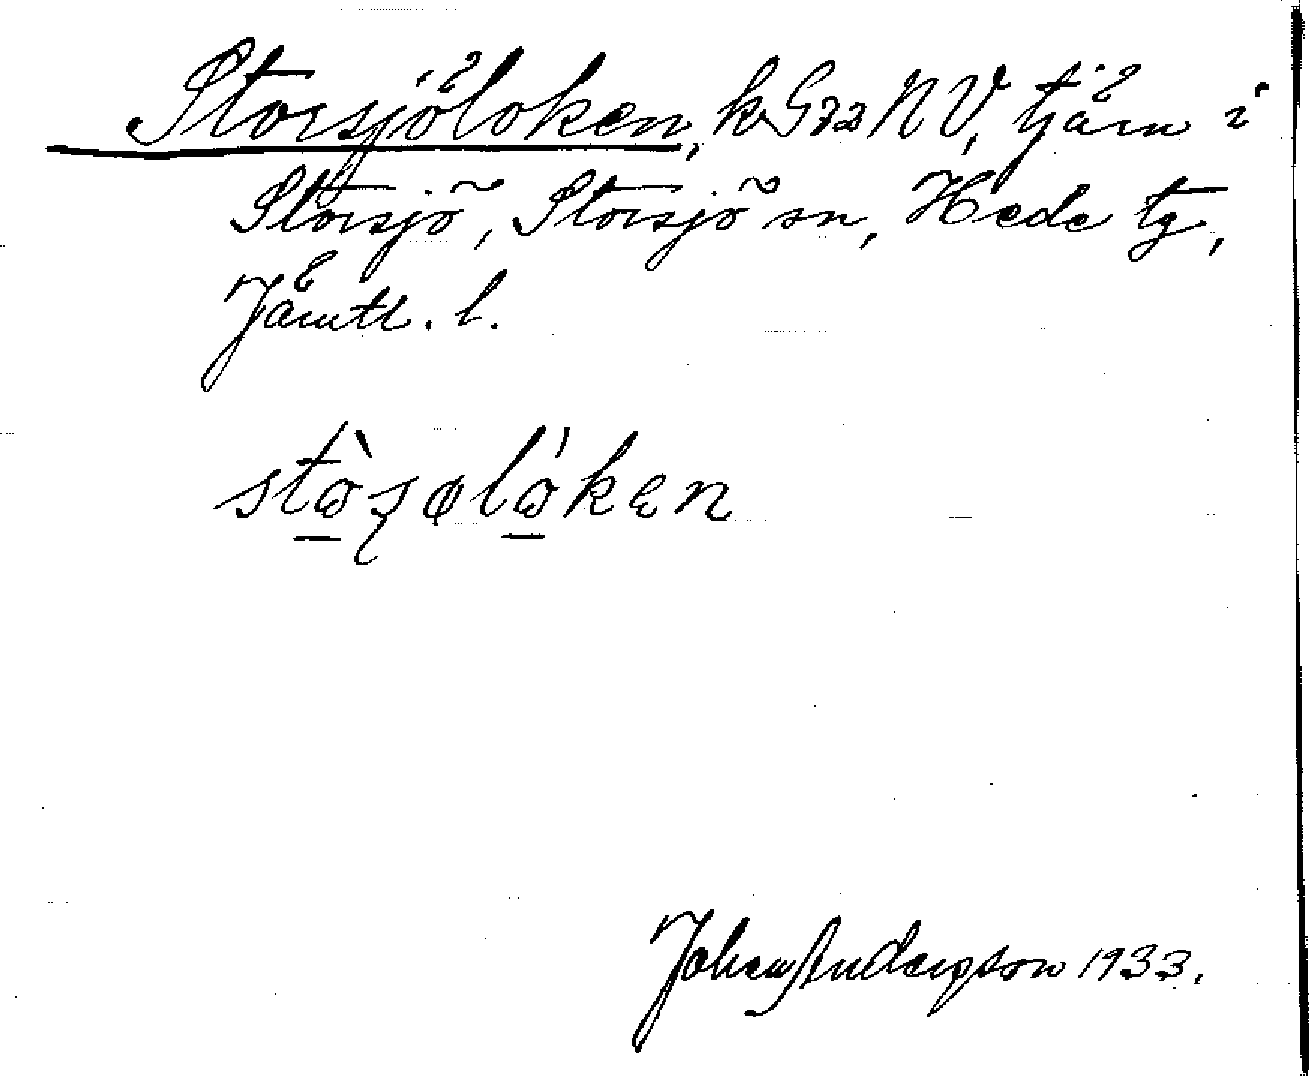 Storsjöloken, k. G 33 NV, tjärn i
Storsjö, Storsjö sn, Hede tg,
Jämtl. l.
stò̠ʂøló̠ken
Johan Andersson 1933.